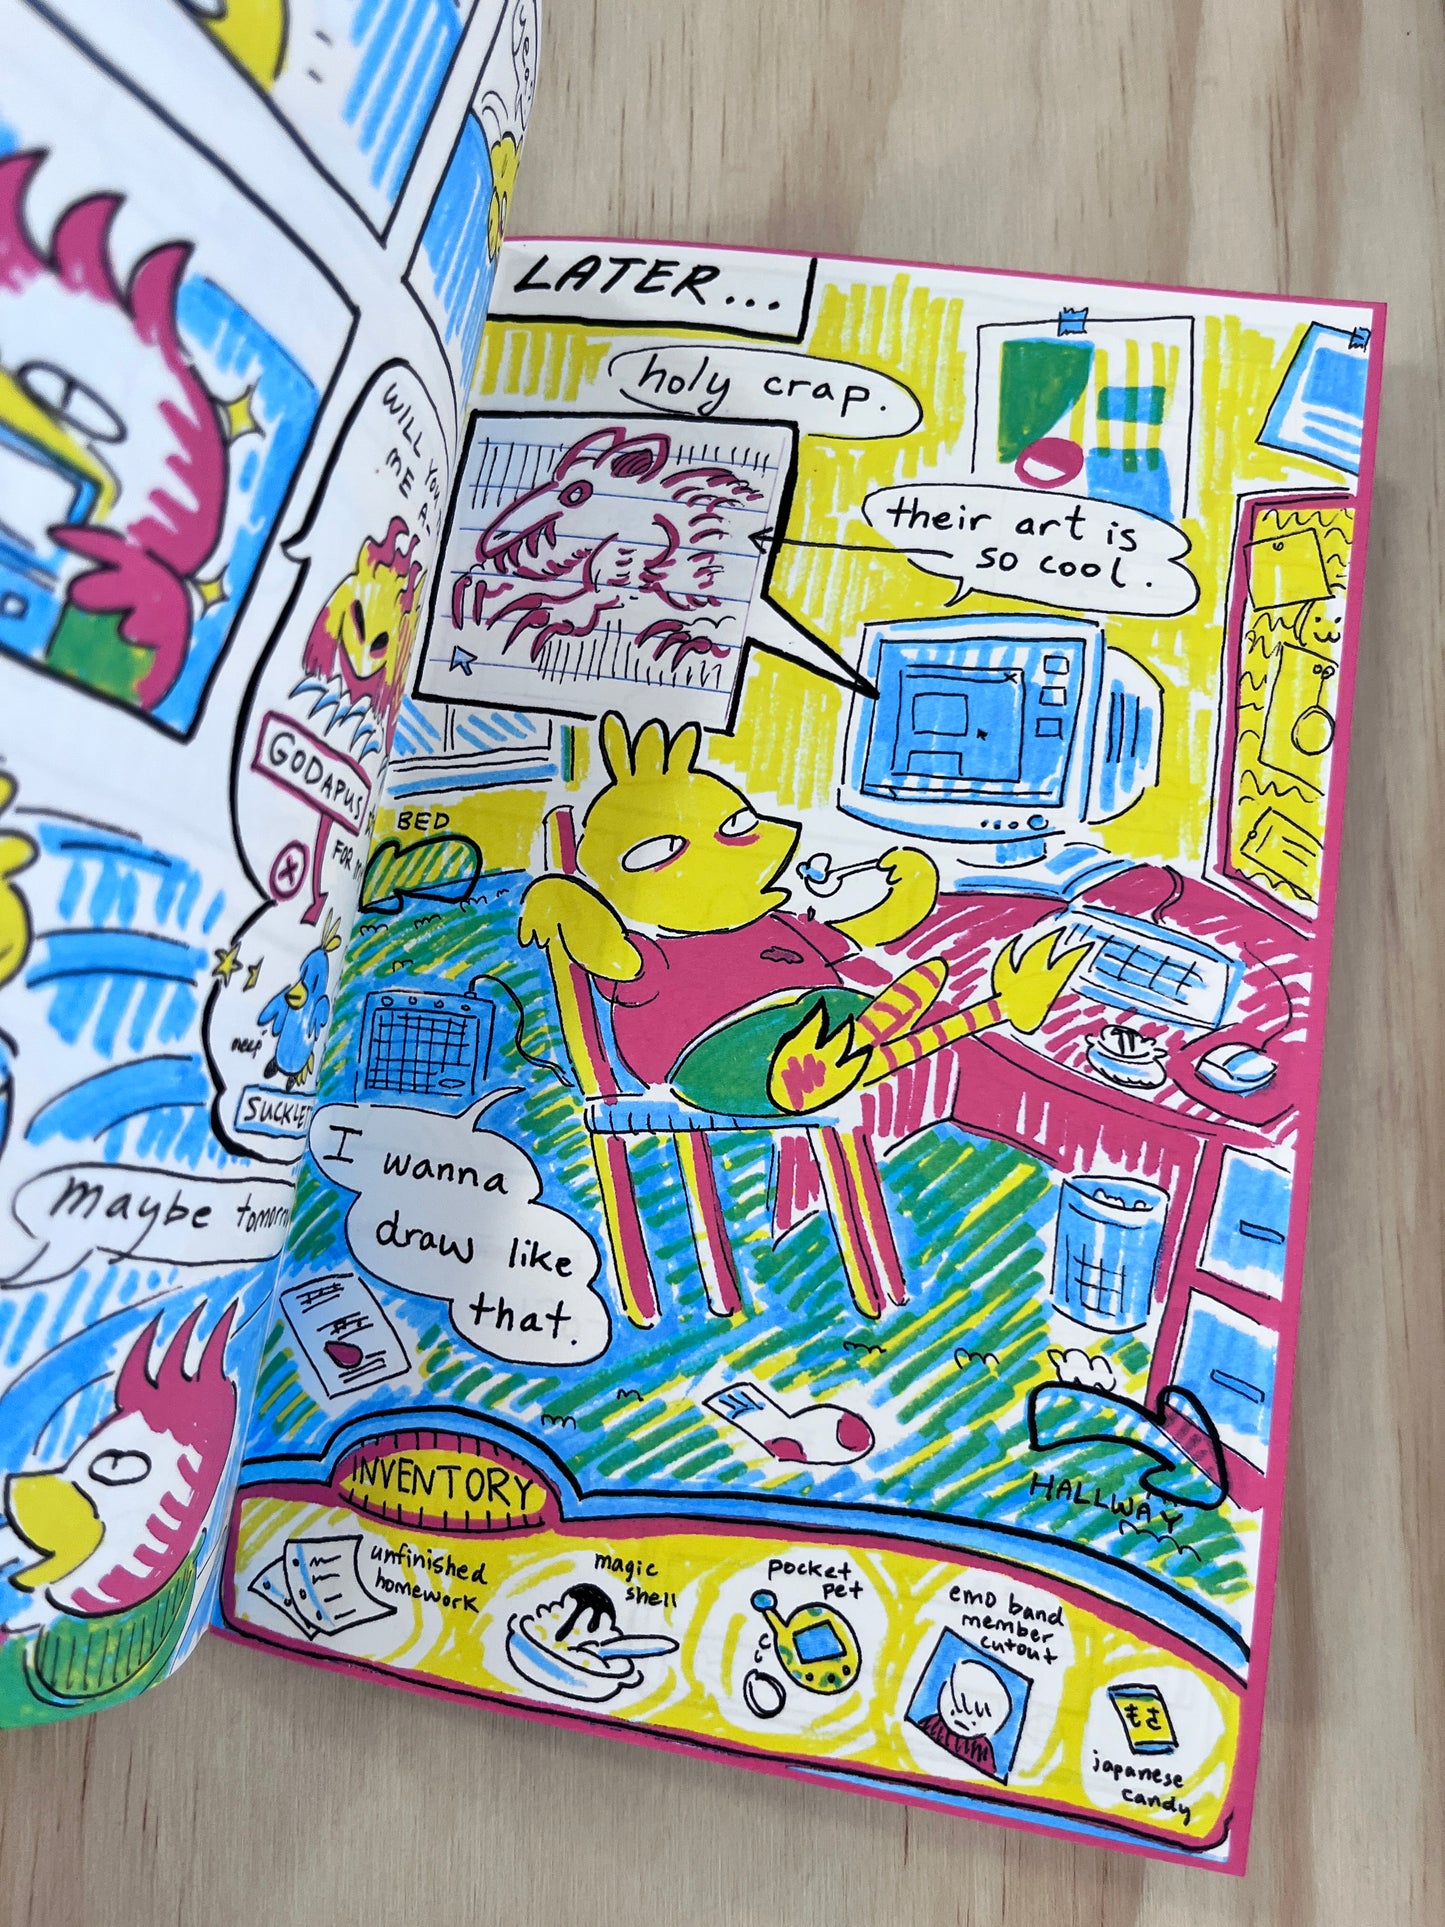 WILL YOU
ME A-
GODAPUS
FOR
meep
maybe
LATER...
holy crap.
their art is
so cool.
BED
I wanna
draw like
that.
HALLWAY
INVENTORY
unfinished
homework
magic
shell
pocket
pet
emo band
member
cutout
もさ
japanese
candy